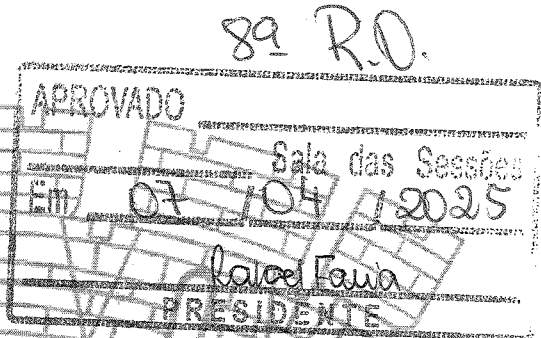 8ª R.O.
APROVADO
Sala das Sessões
Em 07 / 04 / 2025
Rafael Faria
PRESIDENTE